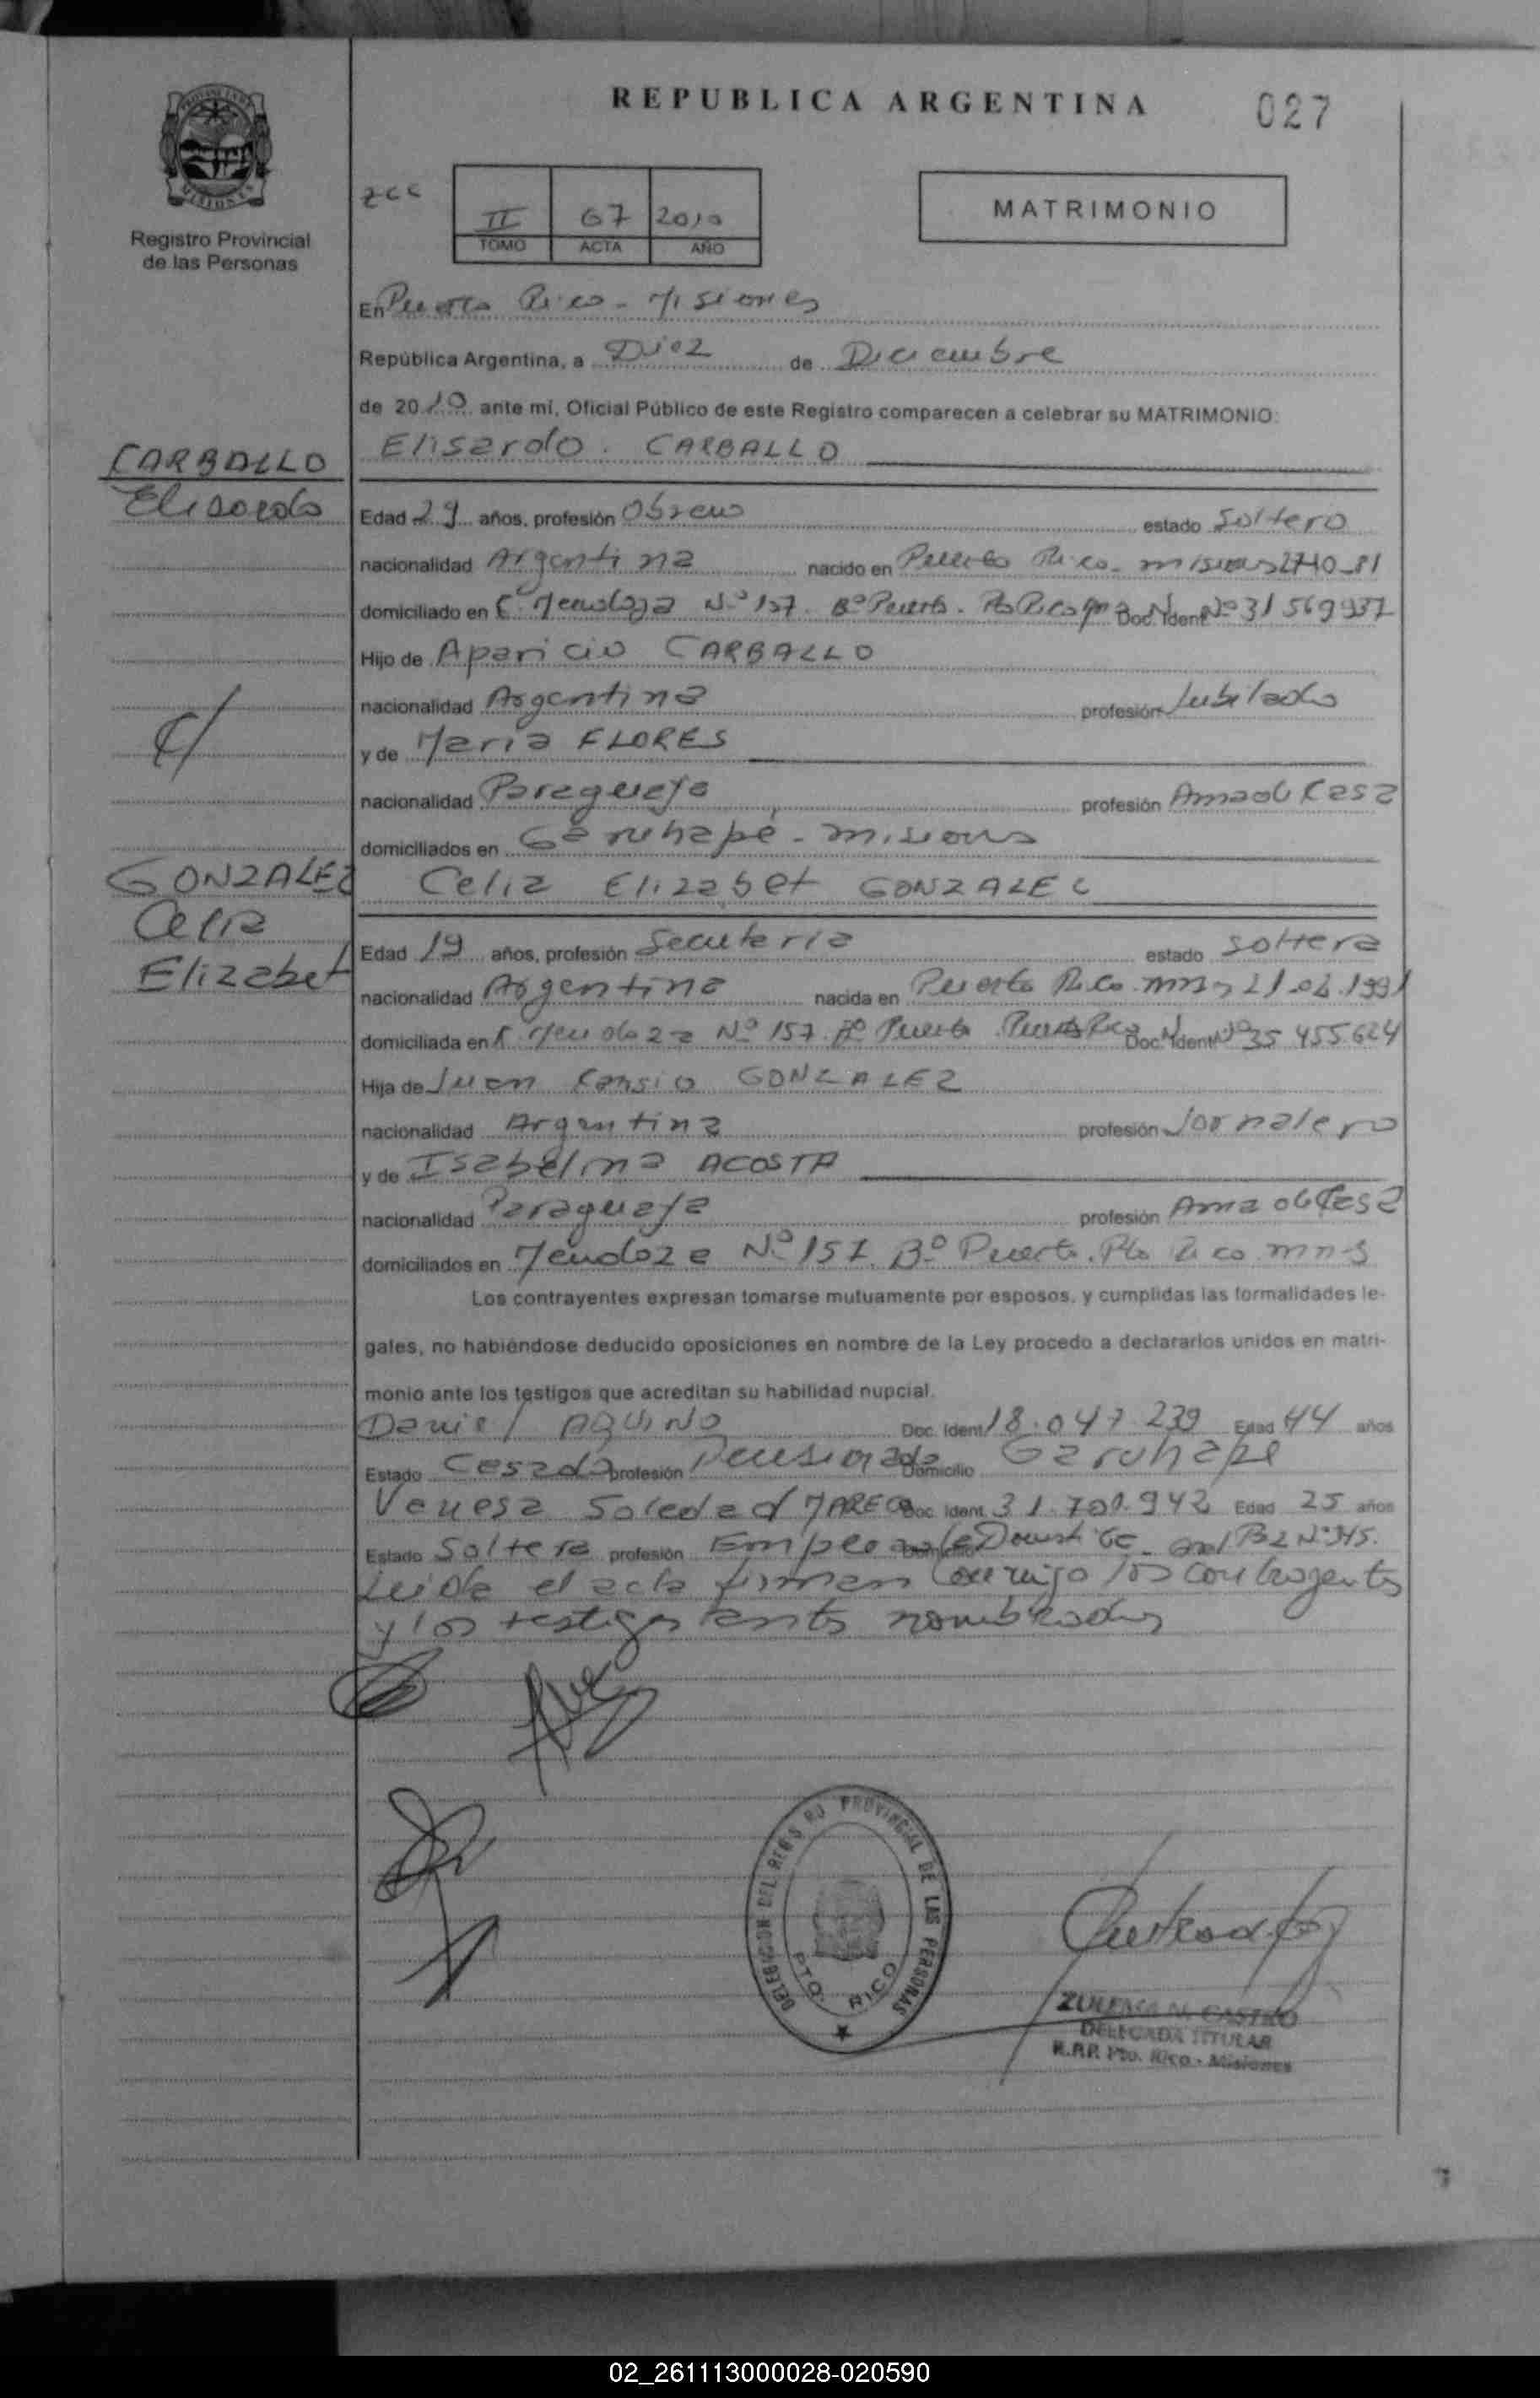 REPUBLICA ARGENTINA
027
PROVINCIA DE
MISIONES
Registro Provincial
de las Personas
II 67 2010
TOMO ACTA AÑO
MATRIMONIO
En Puerto Rico - Misiones
República Argentina, a Diez de Diciembre
de 2010 ante mí, Oficial Público de este Registro comparecen a celebrar su MATRIMONIO:
CARBALLO
Elisardo
Elisardo CARBALLO
Edad 29 años, profesión Obrero estado Soltero
nacionalidad Argentina nacido en Puerto Rico - misiones 27-10-81
domiciliado en C. Mendoza Nº 157 Bº Puerto. Pto Rico Doc. Ident Nº 31 569 937
Hijo de Aparicio CARBALLO
nacionalidad Argentina profesión Jubilado
y de Maria FLORES
nacionalidad Paraguaya profesión Ama de Casa
domiciliados en Garuhapé - misiones
GONZALEZ
Celia
Elizabet
Celia Elizabet GONZALEZ
Edad 19 años, profesión Secretaria estado Soltera
nacionalidad Argentina nacida en Puerto Rico. mns 21.04.1991
domiciliada en C. Mendoza Nº 157 Bº Puerto Puerto Rico Doc. Ident Nº 35 455.624
Hija de Juan GONZALEZ
nacionalidad Argentina profesión Jornalero
y de Isabelina ACOSTA
nacionalidad Paraguaya profesión Ama de Casa
domiciliados en Mendoza Nº 157 Bº Puerto. Pto Rico mns
Los contrayentes expresan tomarse mutuamente por esposos, y cumplidas las formalidades le-
gales, no habiéndose deducido oposiciones en nombre de la Ley procedo a declararlos unidos en matri-
monio ante los testigos que acreditan su habilidad nupcial.
Daniel AQUINO Doc. Ident 18.047.239 Edad 44 años
Estado Casado profesión Pensionado Domicilio Garuhape
Vanesa Soledad MARECO Doc. Ident. 31.701.942 Edad 25 años
Estado Soltera profesión Empleada Domestica Nº 345.
Leida el acta firman conmigo los contrayentes
y los testigos antes nombrados
DELEGACION DEL REGIS RO PROVINCIAL DE LAS PERSONAS
PTO. RICO
ZULEMA N. CASTRO
DELEGADA TITULAR
R.P.P. Pto. Rico - Misiones
02_261113000028-020590